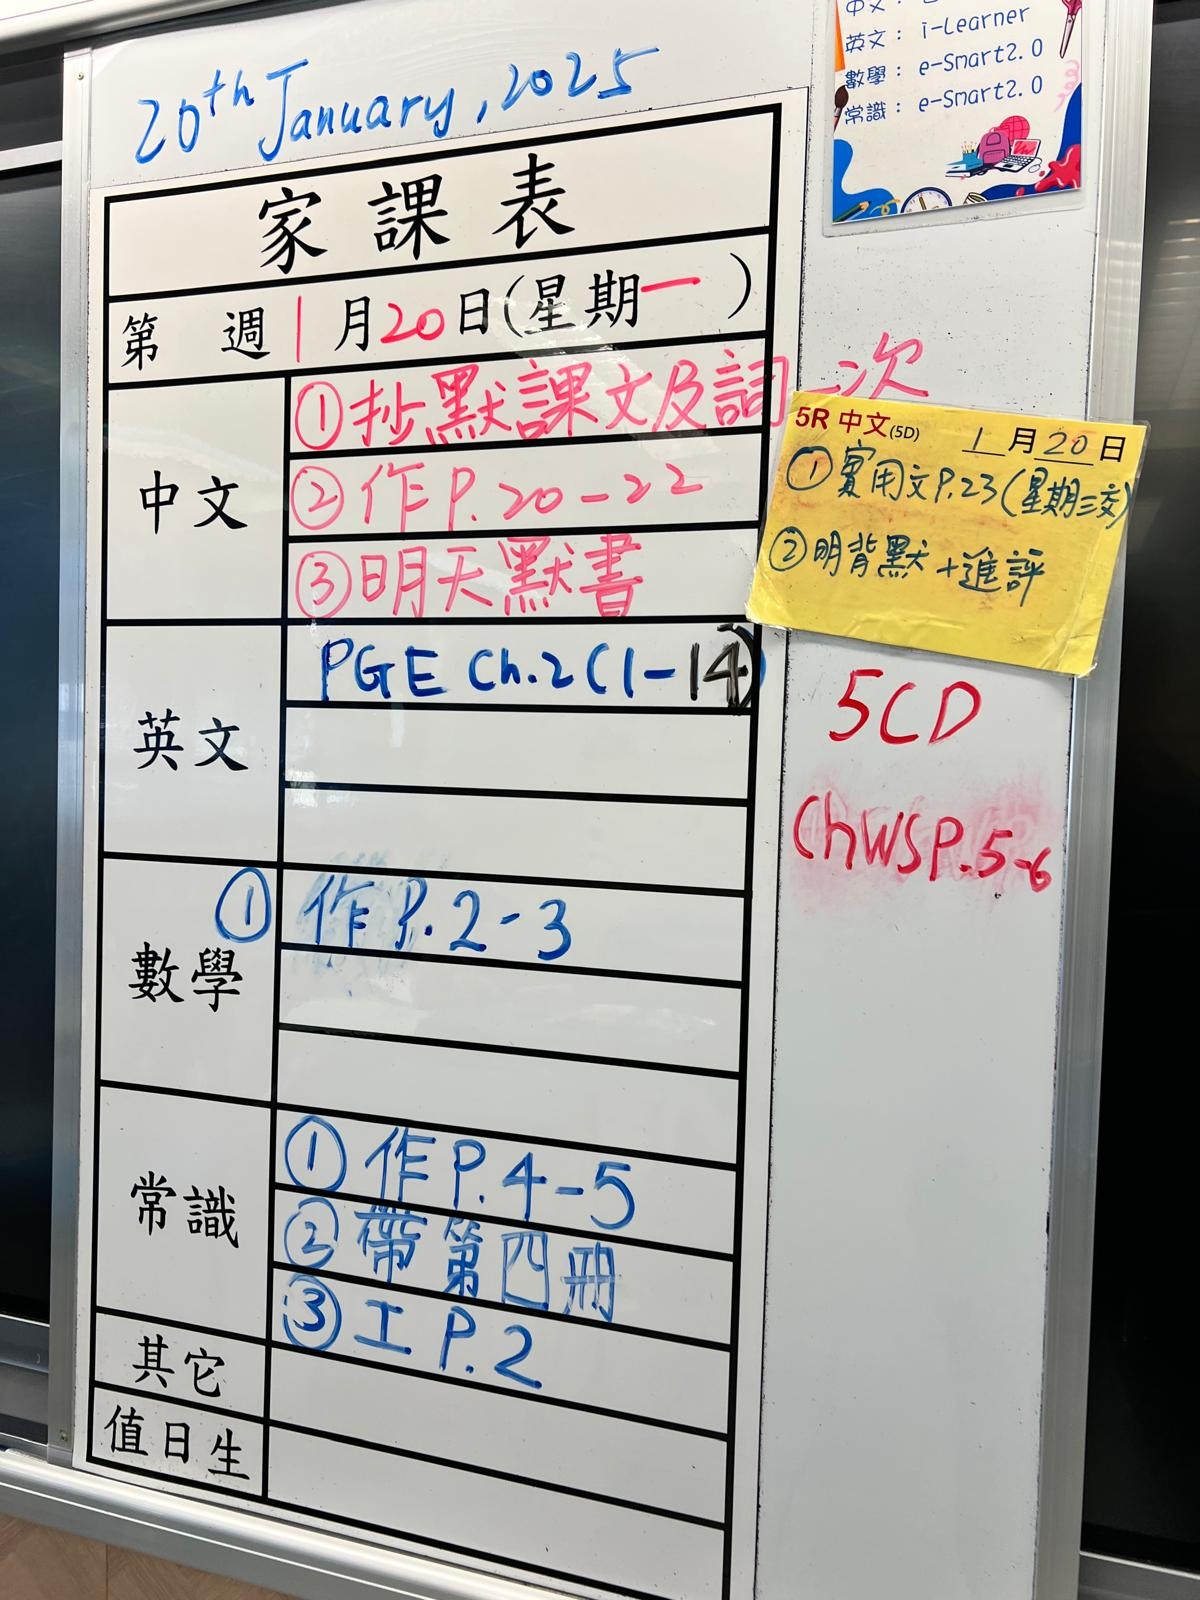 20th January, 2025
家課表
第 週 1月20日(星期一)
中文
①抄默課文及詞一次
②作P.20-22
③明天默書
英文
PGE Ch.2(1-14)
數學
① 作P.2-3
常識
①作P.4-5
②帶第四冊
③工P.2
其它
值日生
中文：
英文： i-Learner
數學： e-Smart2.0
常識： e-Smart2.0
5R 中文(5D) 1月20日
①實用文P.23(星期三交)
②明背默+進評
5CD
ChWSP.5-6